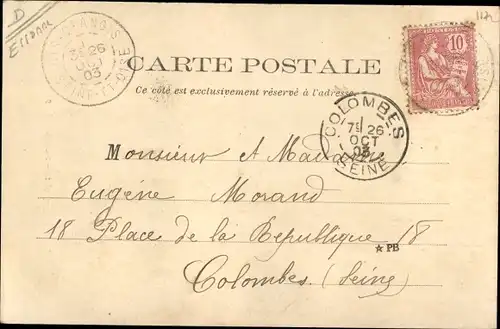 D
Essonne
26
OCT
03
SEINE-ET-OISE
10
CARTE POSTALE
Ce côté est exclusivement réservé à l'adresse
COLOMBES
7E 26
OCT
03
SEINE
Monsieur et Madame
Eugène Morand
18 Place de la République 18
★ PB
Colombes (Seine)